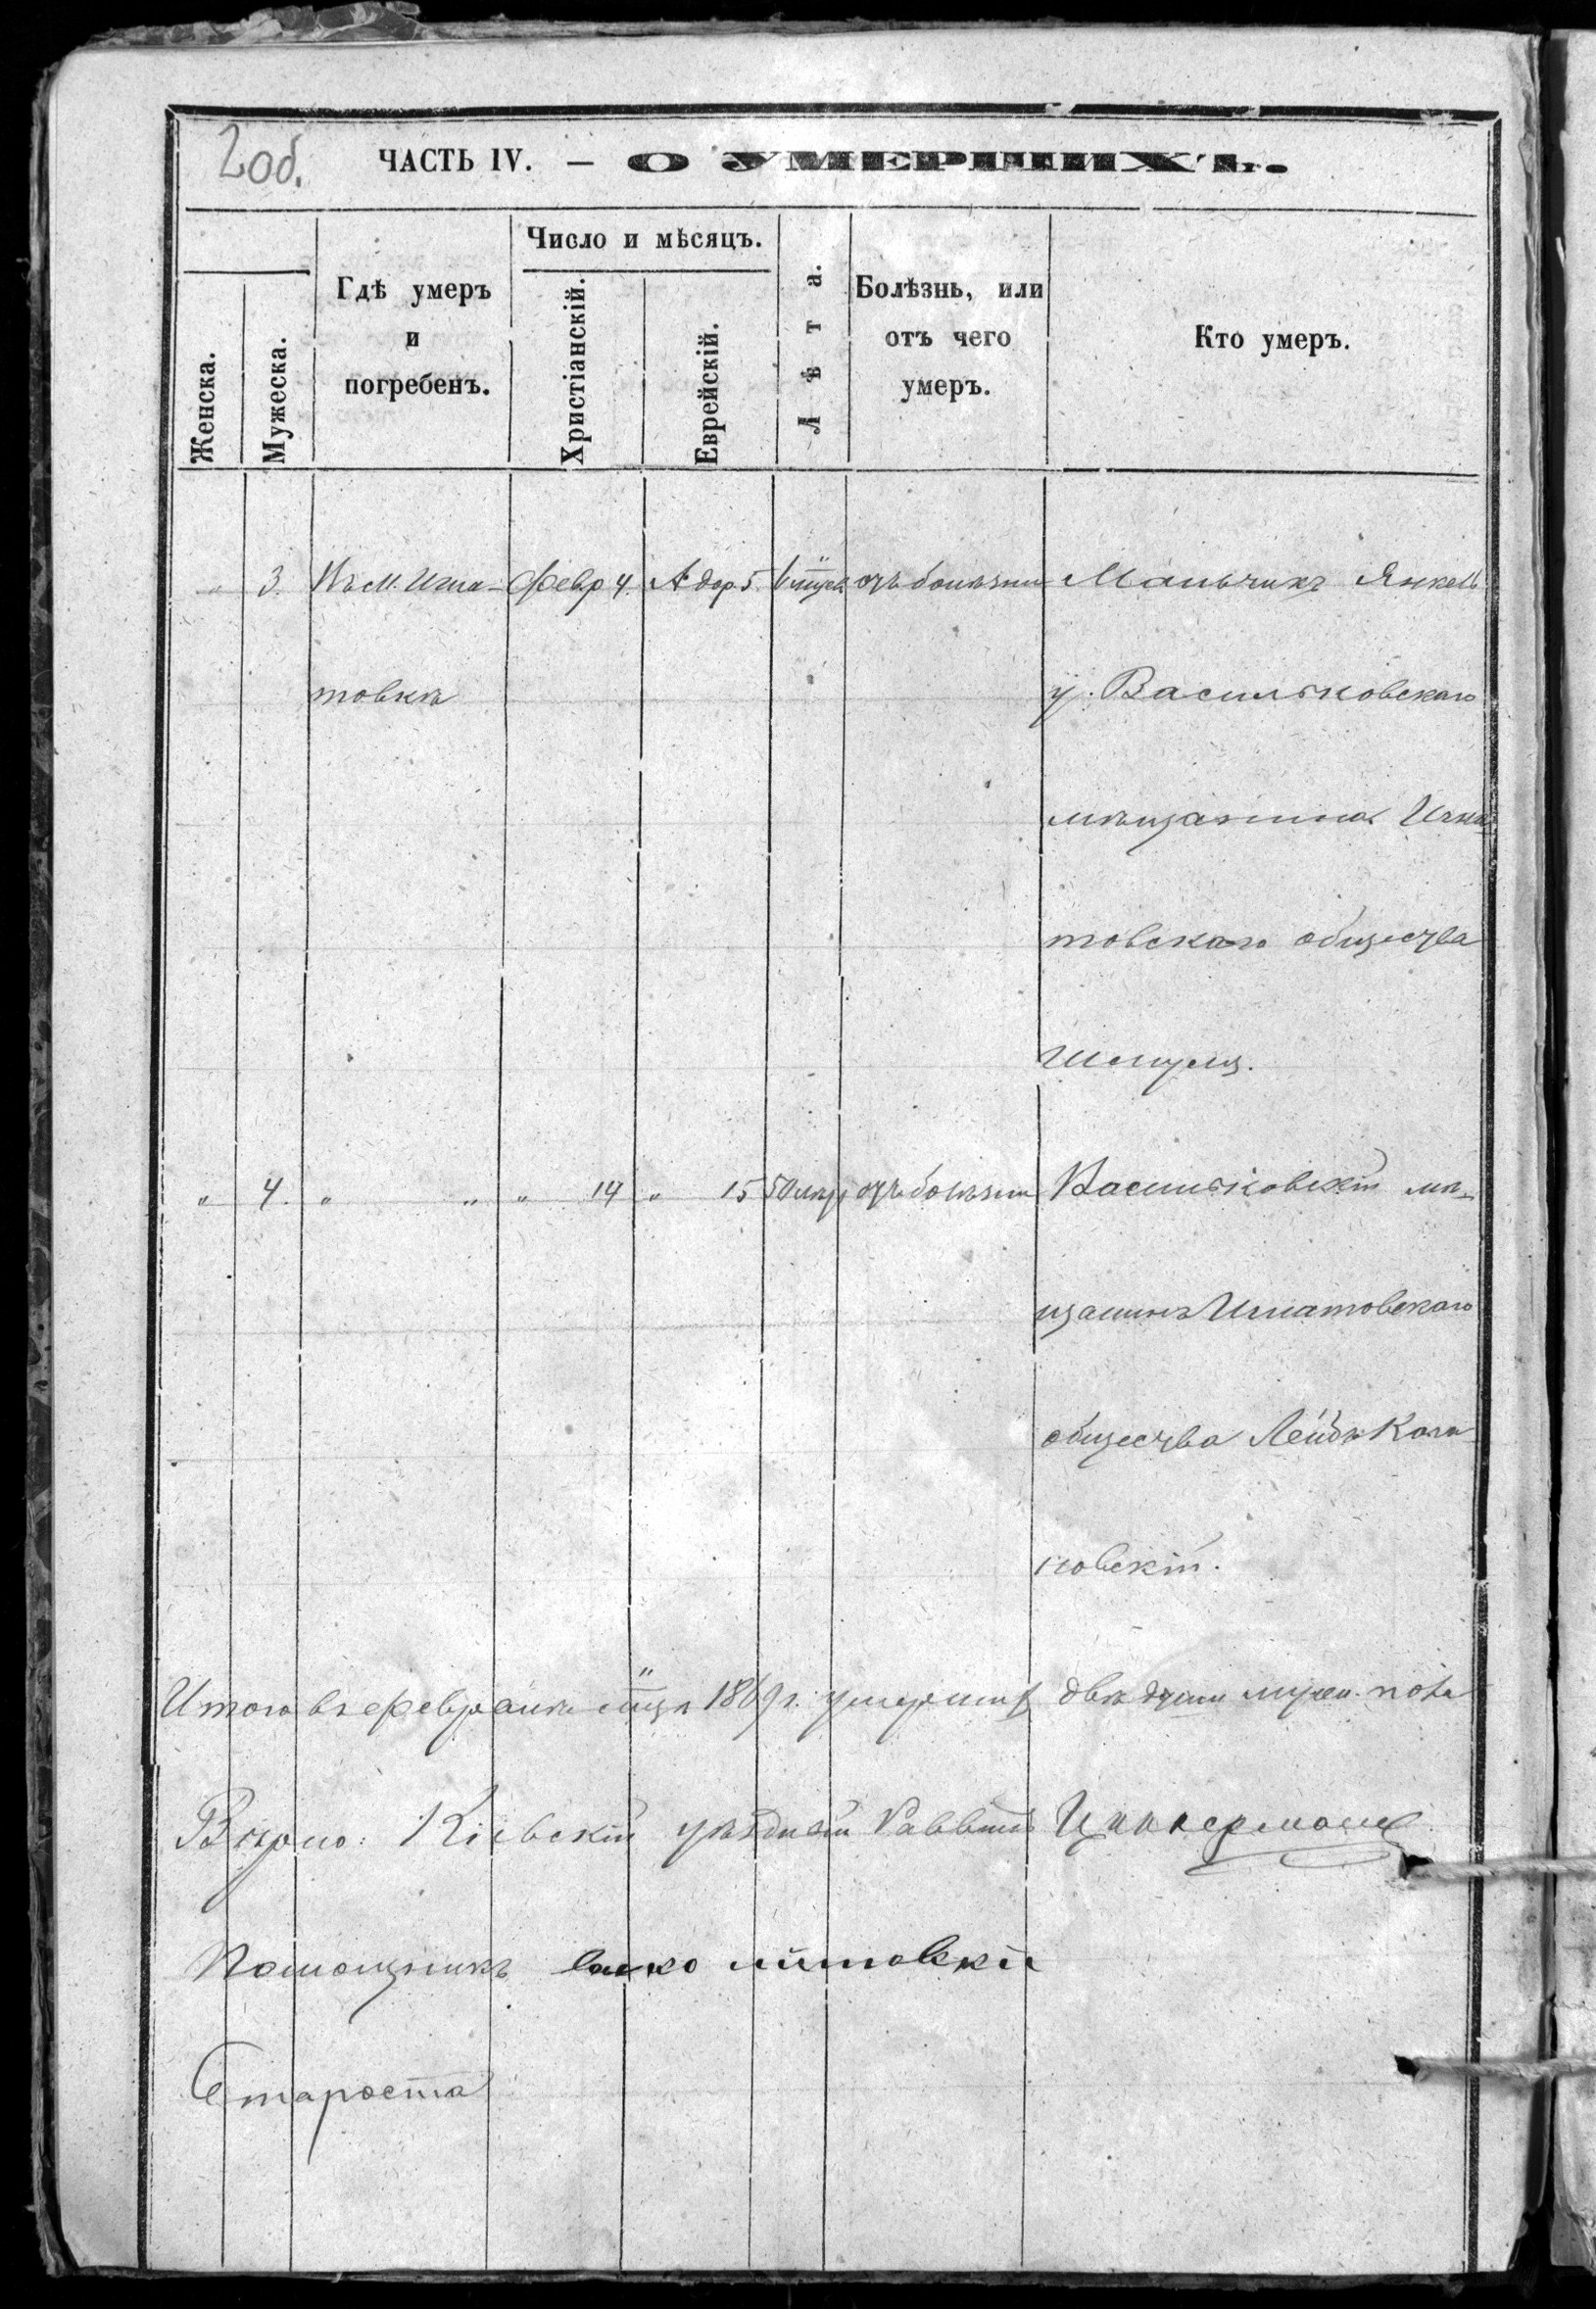 2 об.
ЧАСТЬ IV. — О УМЕРШИХЪ.
Женска.
Мужеска.
Гдѣ умеръ
и
погребенъ.
Число и мѣсяцъ.
Христіанскій.
Еврейскій.
Лѣта.
Болѣзнь, или
отъ чего
умеръ.
Кто умеръ.
„ 3. Въ М. Игна- Февр 4. Адор 5. отъ болѣзни Мальчикъ Янкель
товкѣ у. Васильковскаго
мѣщанина Игна
товскаго общества
Шмуля.
„ 4. „ „ „ 14 „ 15 50 лѣтъ отъ болѣзни Васильковскій мѣ-
щанинъ Игнатовскаго
общества Лейба
новскій.
Итого въ февралѣ мца 1869 г. умершихъ двѣ души мужеск. пола
Вѣрно: Кіевскій уѣздный Раввинъ Цуккерманъ
Помощникъ
Староста